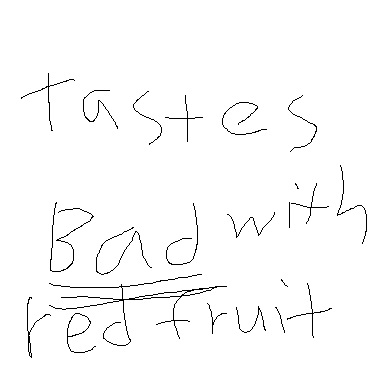 tastes
Bad with
red fruit